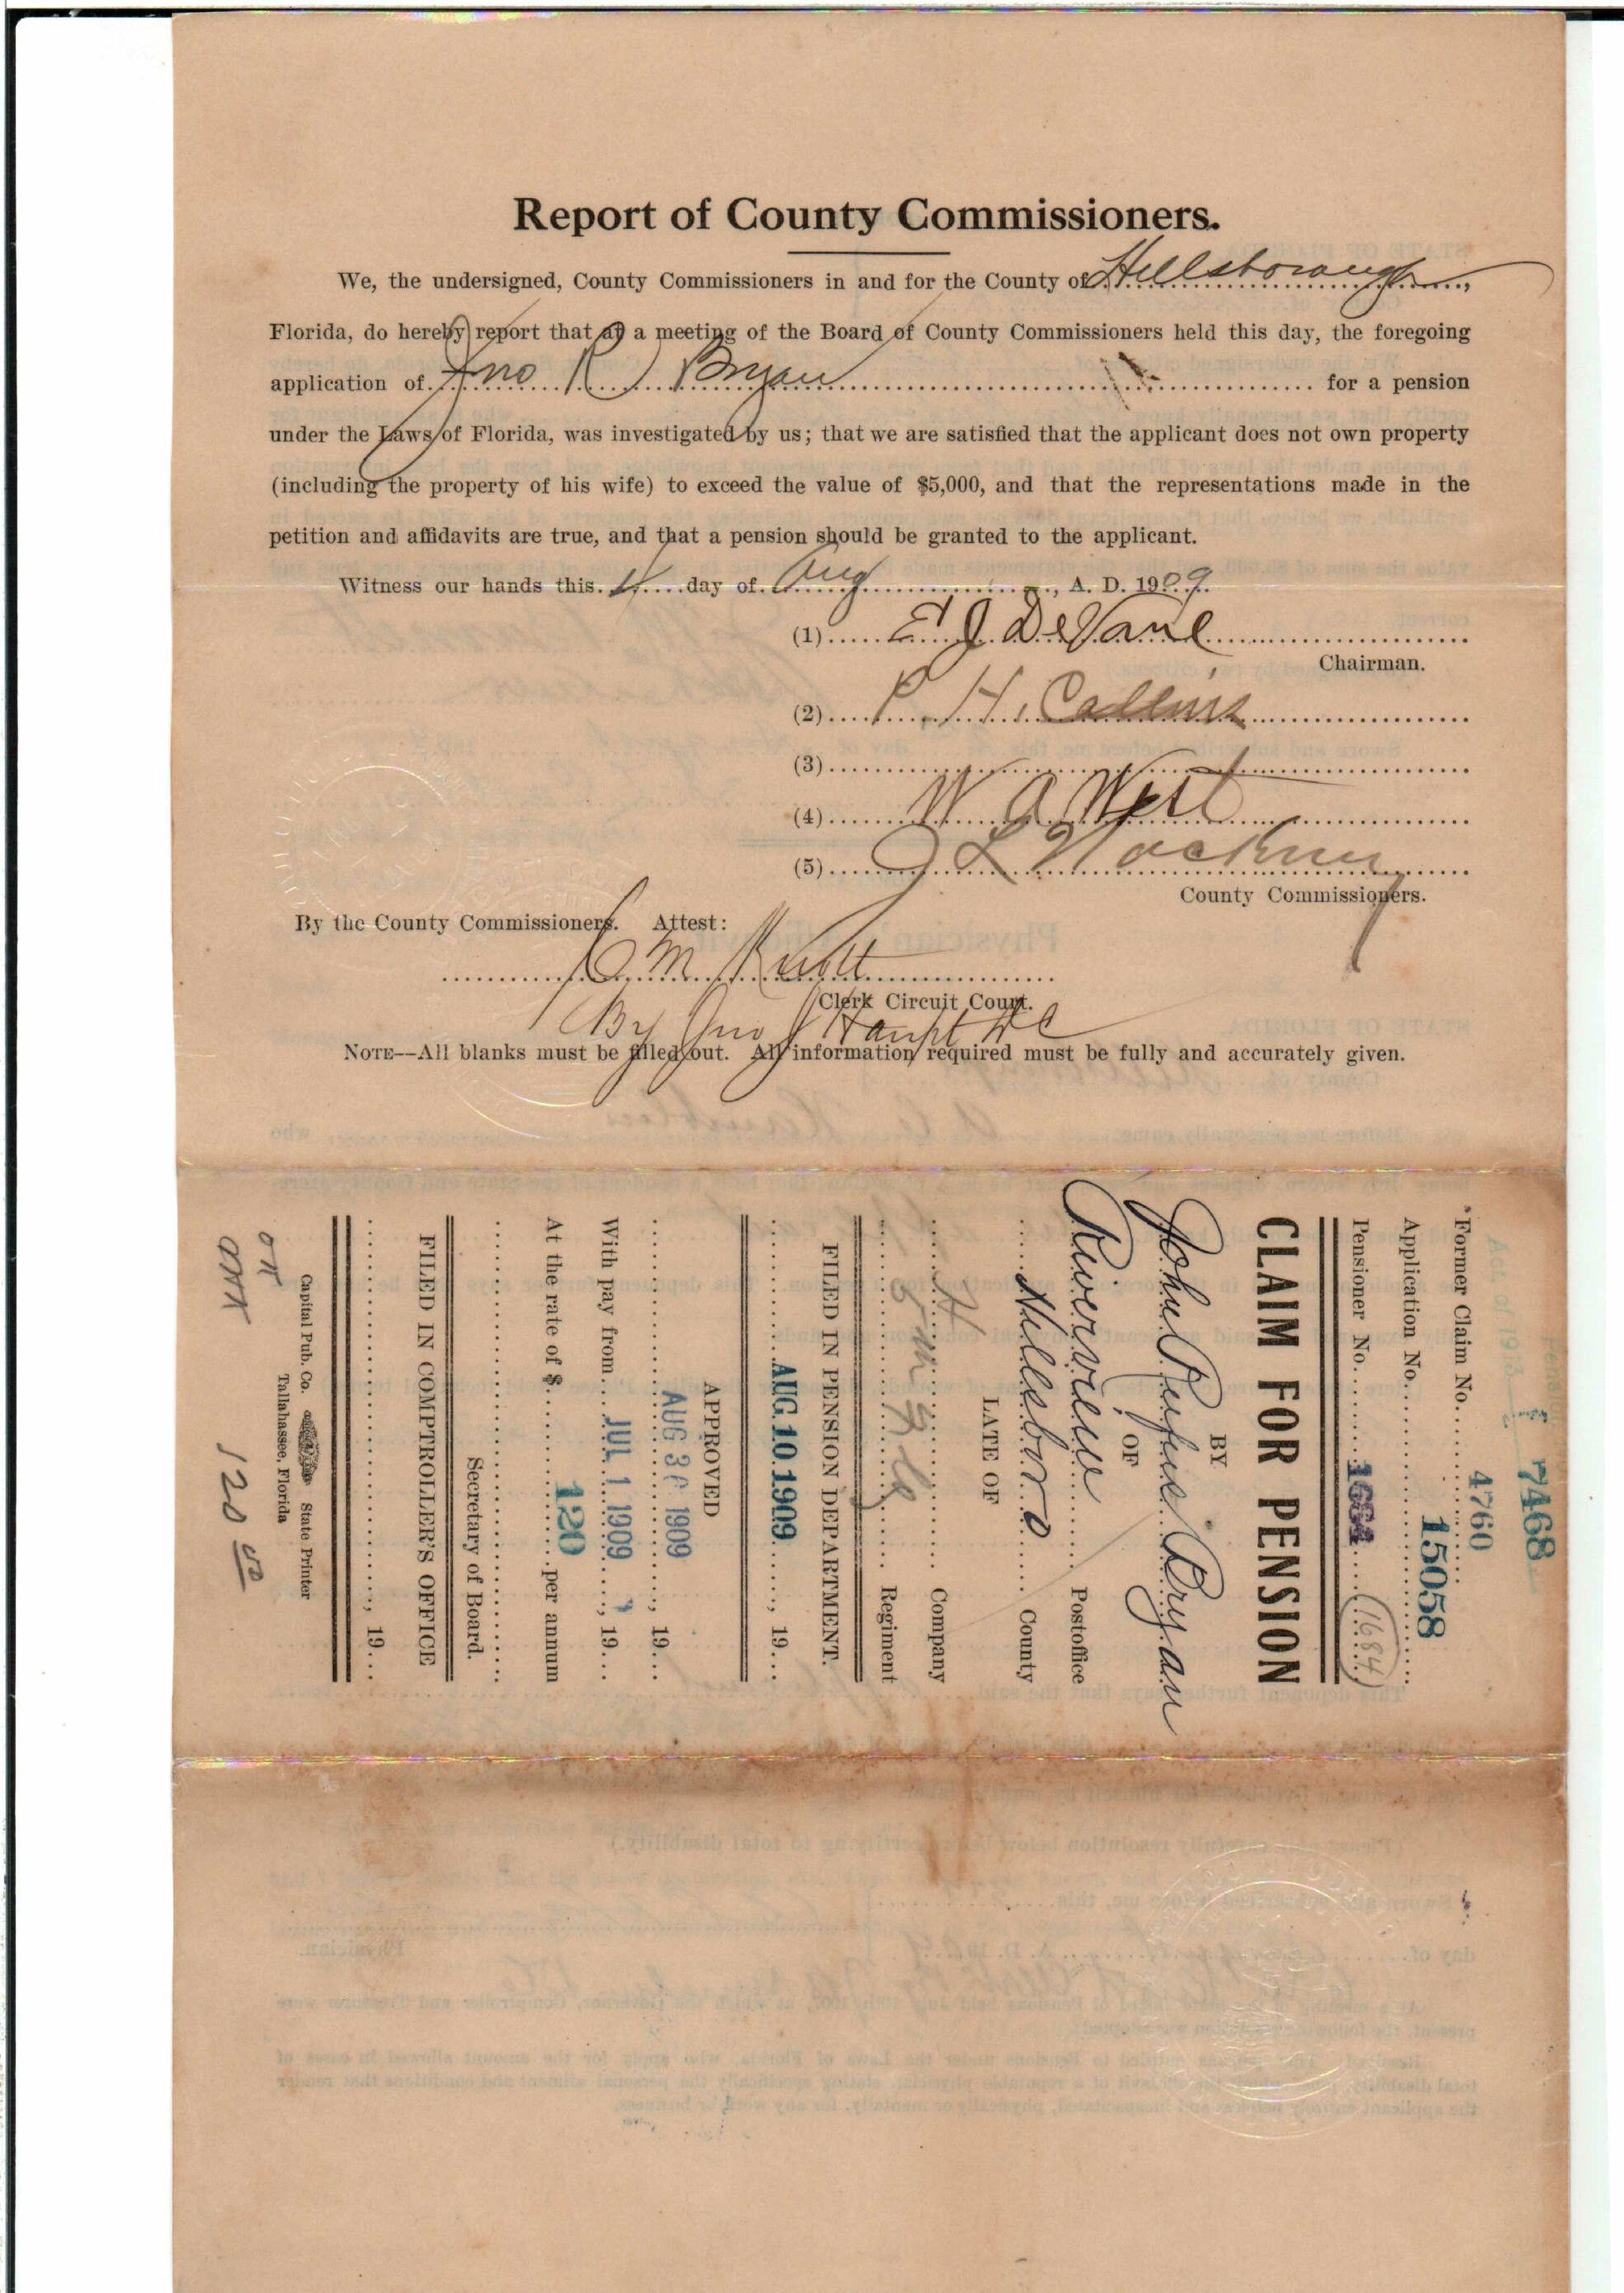 Report of County Commissioners.
We, the undersigned, County Commissioners in and for the County of Hillsborough,
Florida, do hereby report that at a meeting of the Board of County Commissioners held this day, the foregoing
application of Jno R Bryan for a pension
under the Laws of Florida, was investigated by us; that we are satisfied that the applicant does not own property
(including the property of his wife) to exceed the value of $5,000, and that the representations made in the
petition and affidavits are true, and that a pension should be granted to the applicant.
Witness our hands this 4 day of Aug, A. D. 1909.
(1) E J DeVane
Chairman.
(2) P. H. Collins
(3)
(4) W A West
(5) J L
County Commissioners.
By the County Commissioners. Attest:
M. Knott
Clerk Circuit Court.
By Jno Haupt DC
NOTE--All blanks must be filled out. All information required must be fully and accurately given.
Act of 1913
7468
4760
*Former Claim No.
Application No. 15058
Pensioner No. 1664 (1684)
CLAIM FOR PENSION
BY
John Rufus Bryan
OF
Riverview Postoffice
Hillsboro County
LATE OF
H Company
Fla Regiment
FILED IN PENSION DEPARTMENT.
AUG 10 1909, 19
APPROVED
AUG 30 1909, 19
With pay from JUL 1 1909, 19
At the rate of $ 120 per annum
Secretary of Board.
FILED IN COMPTROLLER'S OFFICE
, 19
Capital Pub. Co. State Printer
Tallahassee, Florida
OK
120